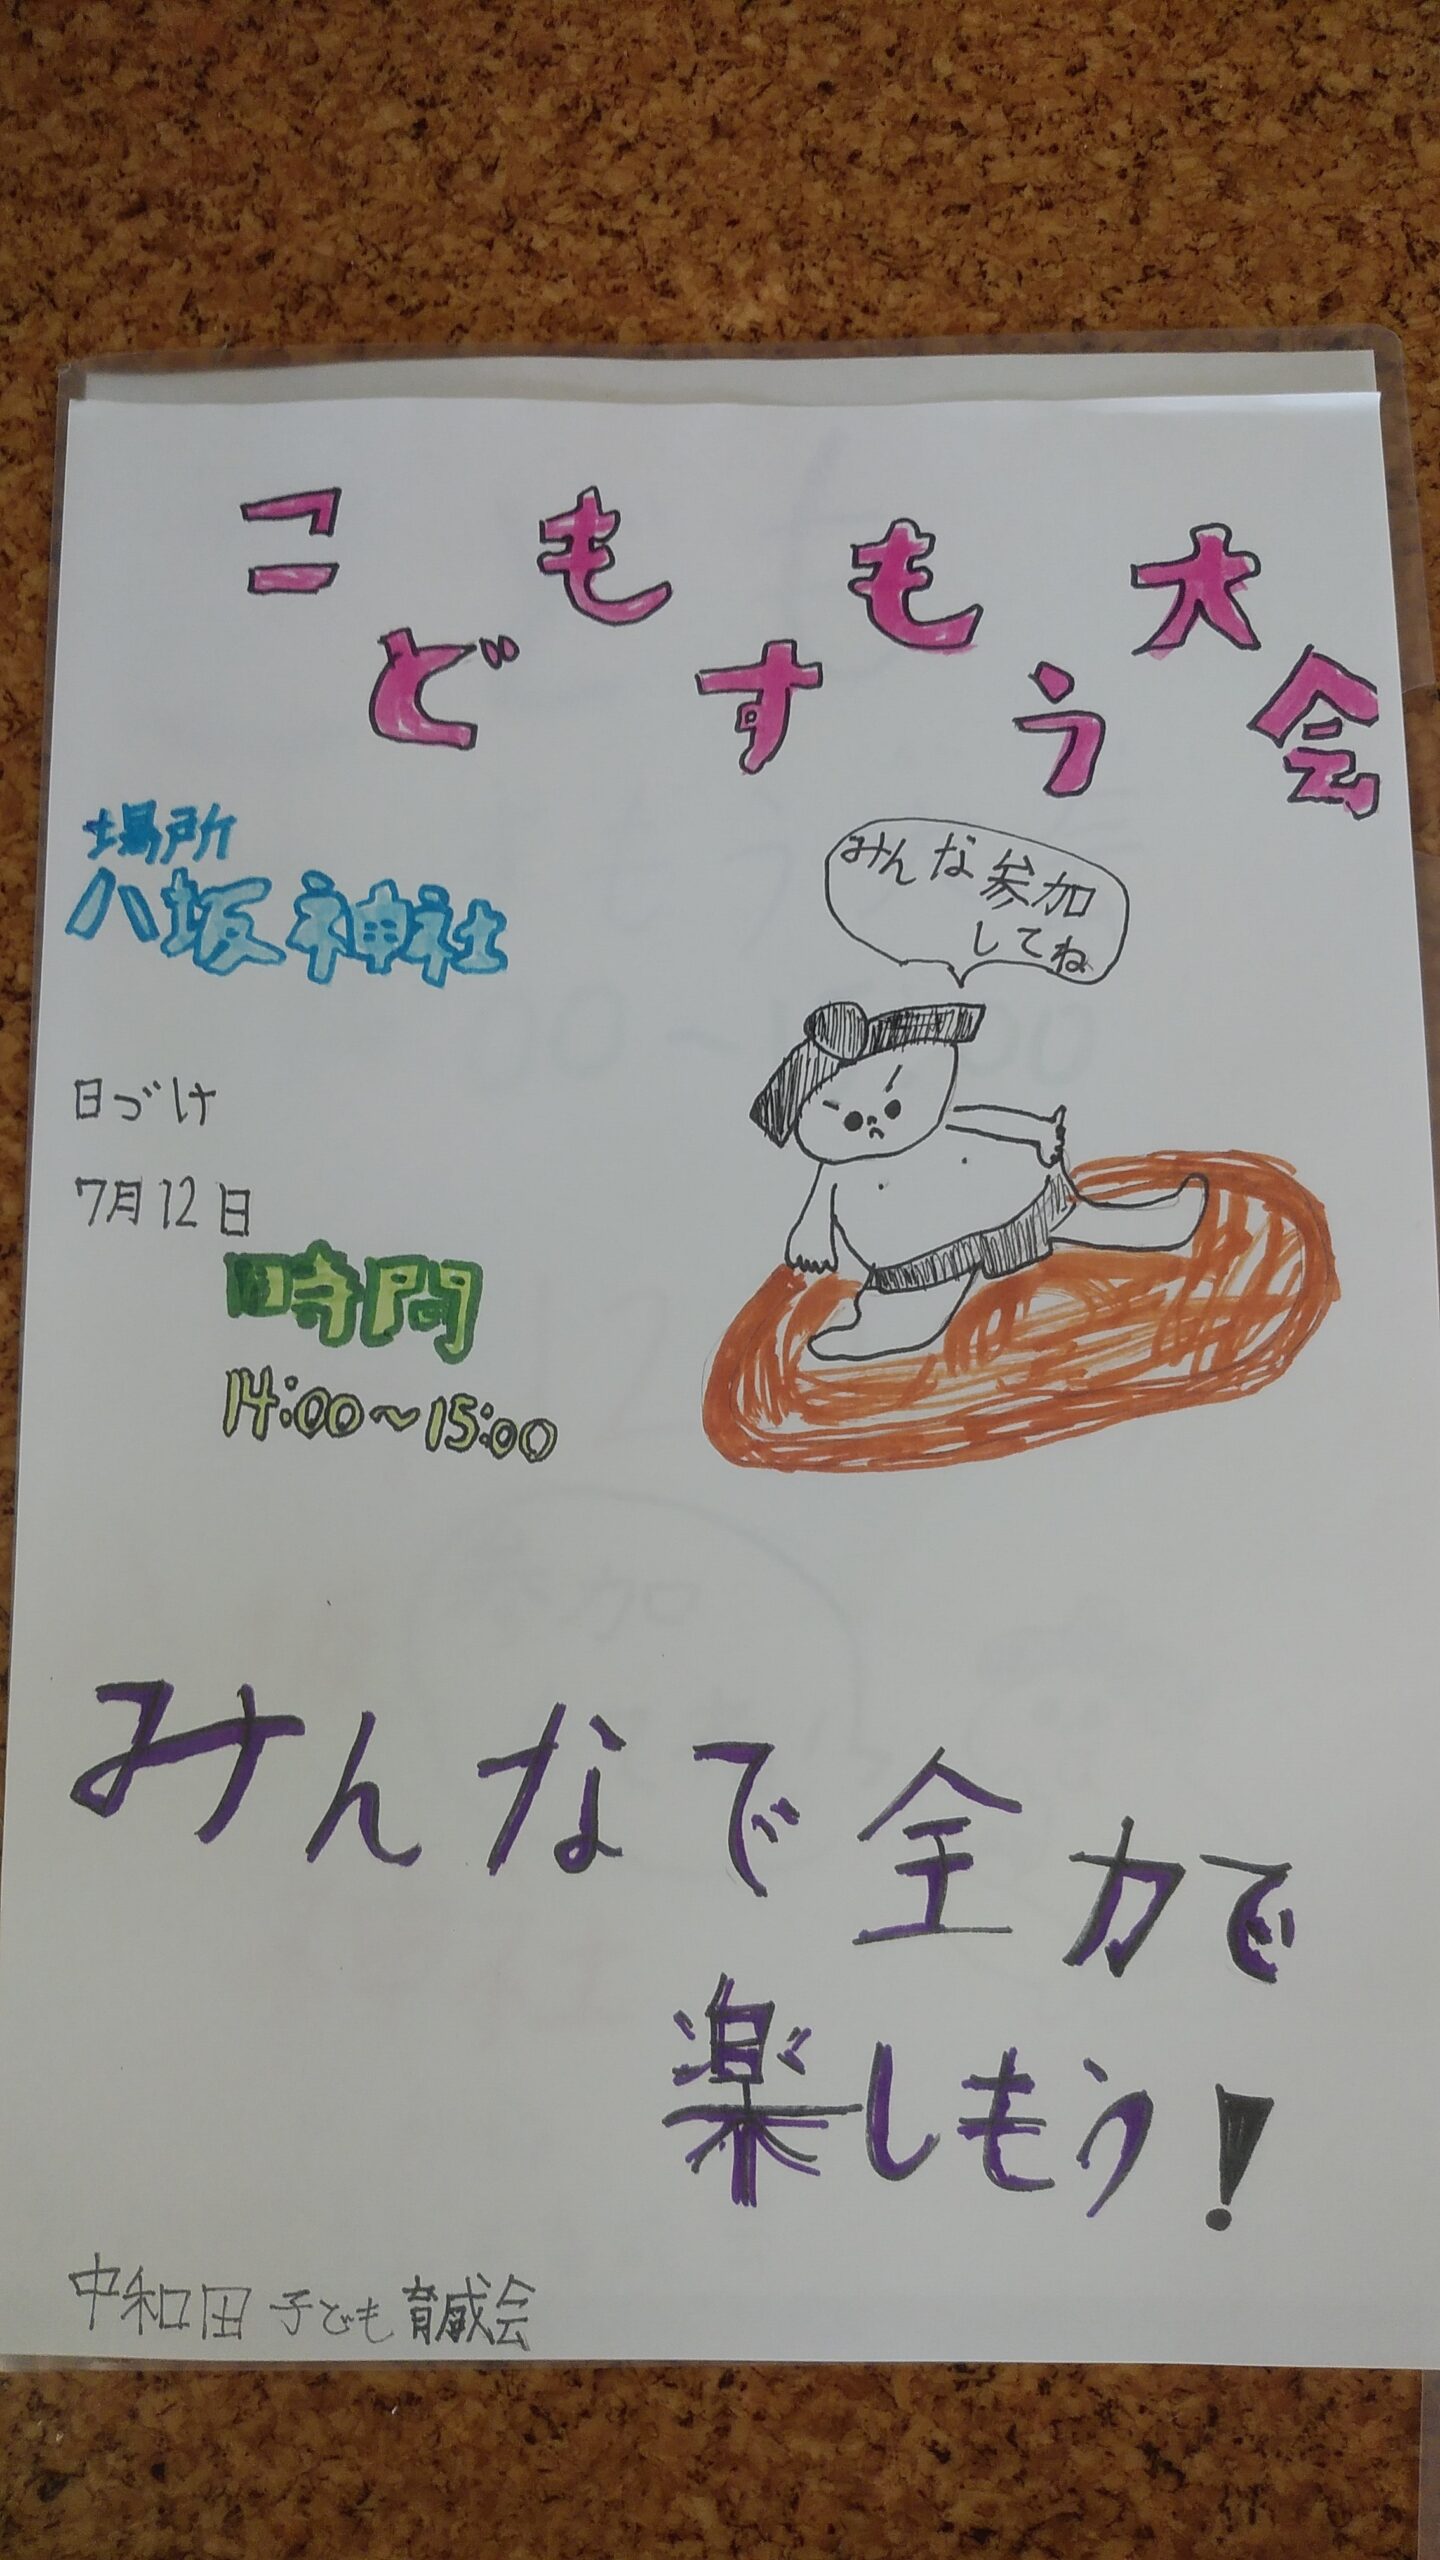 こどもすもう大会
場所
八坂神社
みんな参加
してね
日づけ
7月12日
時間
14:00〜15:00
みんなで全力で
楽しもう!
中和田子ども育成会